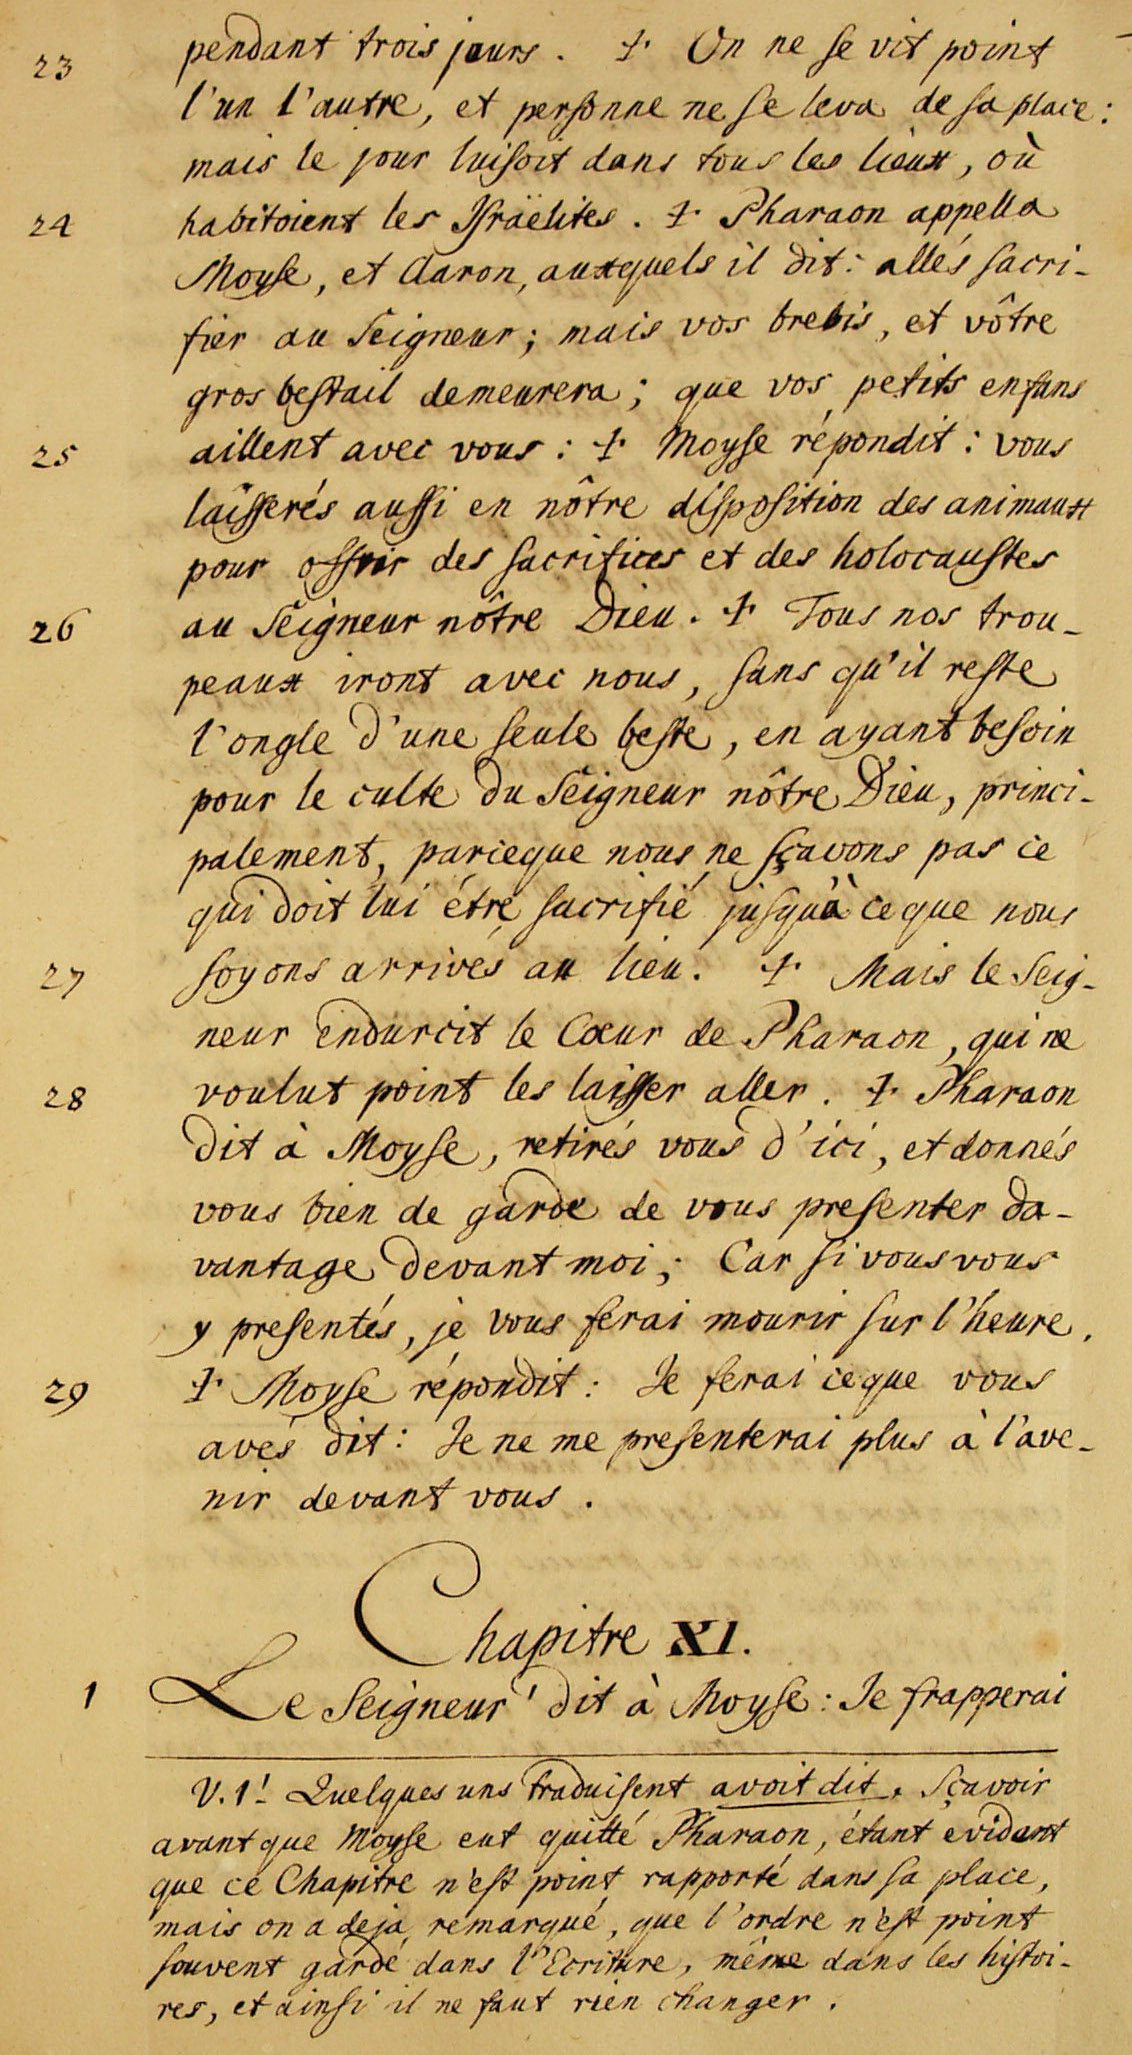 23 pendant trois jours . ☩ On ne se vit point
l'un l'autre, et personne ne se leva de sa place :
mais le jour luisoit dans tous les lieux, où
24 habitoient les Israëlites . ☩ Pharaon appella
Moyse, et Aaron, auxquels il dit : allés sacri-
fier au Seigneur ; mais vos brebis, et vôtre
gros bestail demeurera ; que vos petits enfans
25 aillent avec vous : ☩ Moyse répondit : vous
laisserés aussi en nôtre disposition des animaux
pour offrir des sacrifices et des holocaustes
26 au Seigneur nôtre Dieu . ☩ Tous nos trou-
peaux iront avec nous, sans qu'il reste
l'ongle d'une seule beste, en ayant besoin
pour le culte du Seigneur nôtre Dieu, princi-
palement, parceque nous ne sçavons pas ce
qui doit lui étre sacrifié jusqu'à ce que nous
27 soyons arrivés au lieu . ☩ Mais le Seig-
neur endurcit le Cœur de Pharaon, qui ne
28 voulut point les laisser aller . ☩ Pharaon
dit à Moyse, retirés vous d'ici, et donnés
vous bien de garde de vous presenter da-
vantage devant moi ; Car si vous vous
y presentés, je vous ferai mourir sur l'heure .
29 ☩ Moyse répondit : Je ferai ce que vous
avés dit : Je ne me presenterai plus à l'ave-
nir devant vous .
Chapitre XI.
1 Le Seigneur ' dit à Moyse : Je frapperai
V. 1! Quelques uns traduisent avoit dit . Sçavoir
avant que Moyse eut quitté Pharaon, étant evidant
que ce Chapitre n'est point rapporté dans sa place,
mais on a deja remarqué, que l'ordre n'est point
souvent gardé dans l'Ecriture, même dans les histoi-
res, et ainsi il ne faut rien changer .